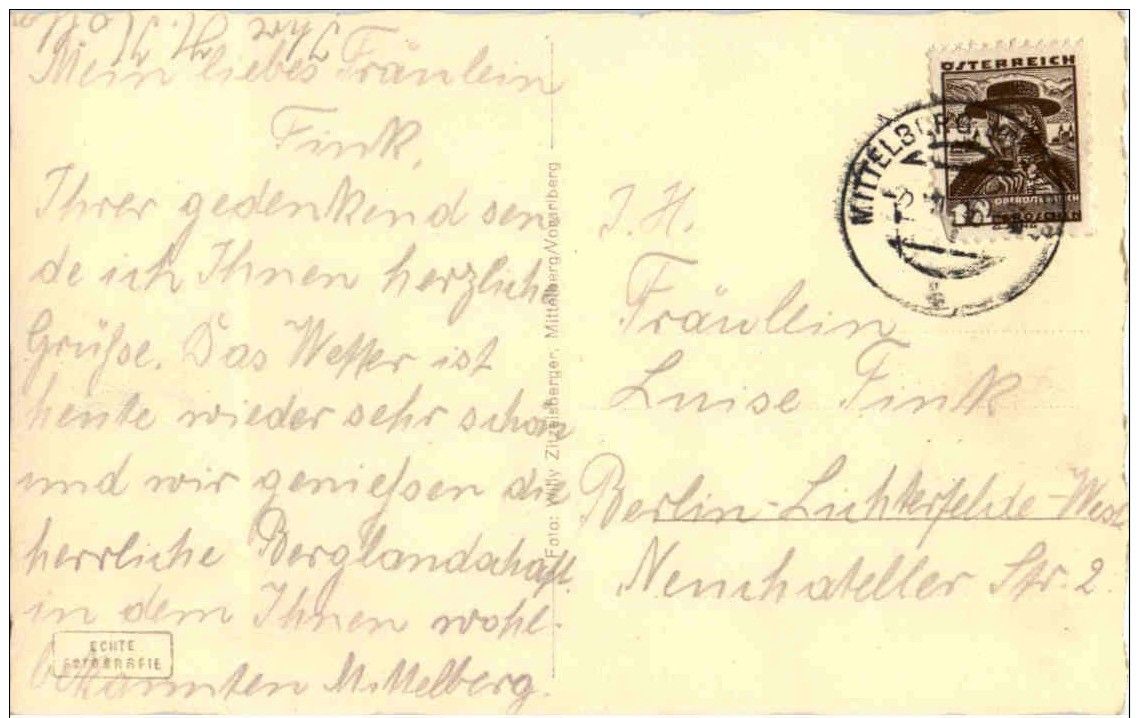 Mein liebes Fräulein
Fink,
Ihrer gedenkend sen
de ich Ihnen herzliche
Grüße. Das Wetter ist
heute wieder sehr schön
und wir genießen die
herrliche Berglandschaft
in dem Ihnen wohl-
bekannten Mittelberg.
Ihr
ECHTE
FOTOGRAFIE
Foto: Willy Zitzelsberger, Mittelberg/Vorarlberg
ÖSTERREICH
OBERÖSTERREICH
12 GROSCHEN
MITTELBERG
I. H.
Fräulein
Luise Fink
Berlin-Lichterfelde-West
Neuchateller Str. 2.